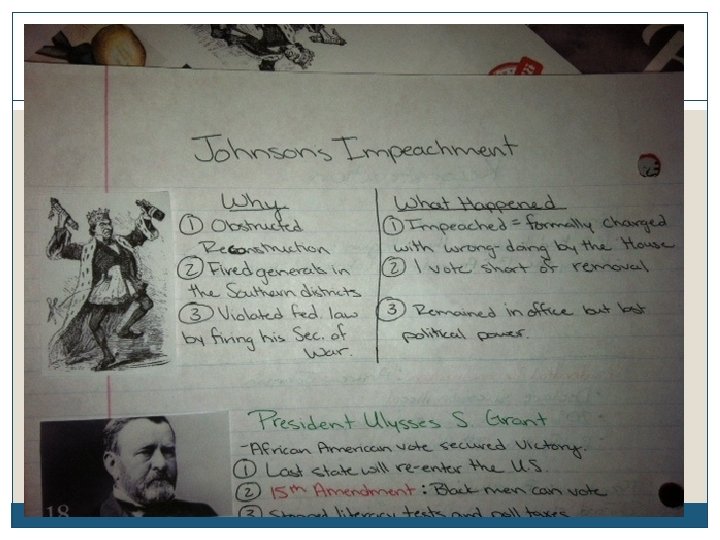 Johnsons Impeachment
Why
① Obstructed
Reconstruction
② Fired generals in
the Southern districts
③ Violated fed. law
by firing his Sec. of
War.
What Happened
① Impeached = formally charged
with wrong-doing by the House
② 1 vote short of removal
③ Remained in office but lost
political power.
President Ulysses S. Grant
-African American vote secured victory.
① Last state will re-enter the U.S.
② 15th Amendment: Black men can vote
③ Stopped literacy tests and poll taxes
18